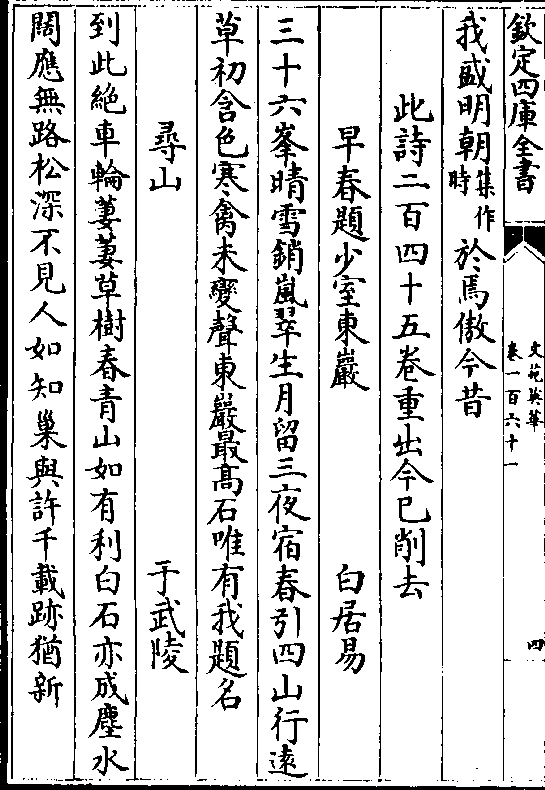 欽定四庫全書
文苑英華
卷一百六十一
四
我盛明朝集作時於焉傲今昔
此詩二百四十五卷重出今已削去
早春題少室東巖　白居易
三十六峯晴雪銷嵐翠生月留三夜宿春引四山行遠
草初含色寒禽未變聲東巖最高石唯有我題名
尋山　于武陵
到此絶車輪萋萋草樹春青山如有利白石亦成塵水
闊應無路松深不見人如知巢與許千載跡猶新